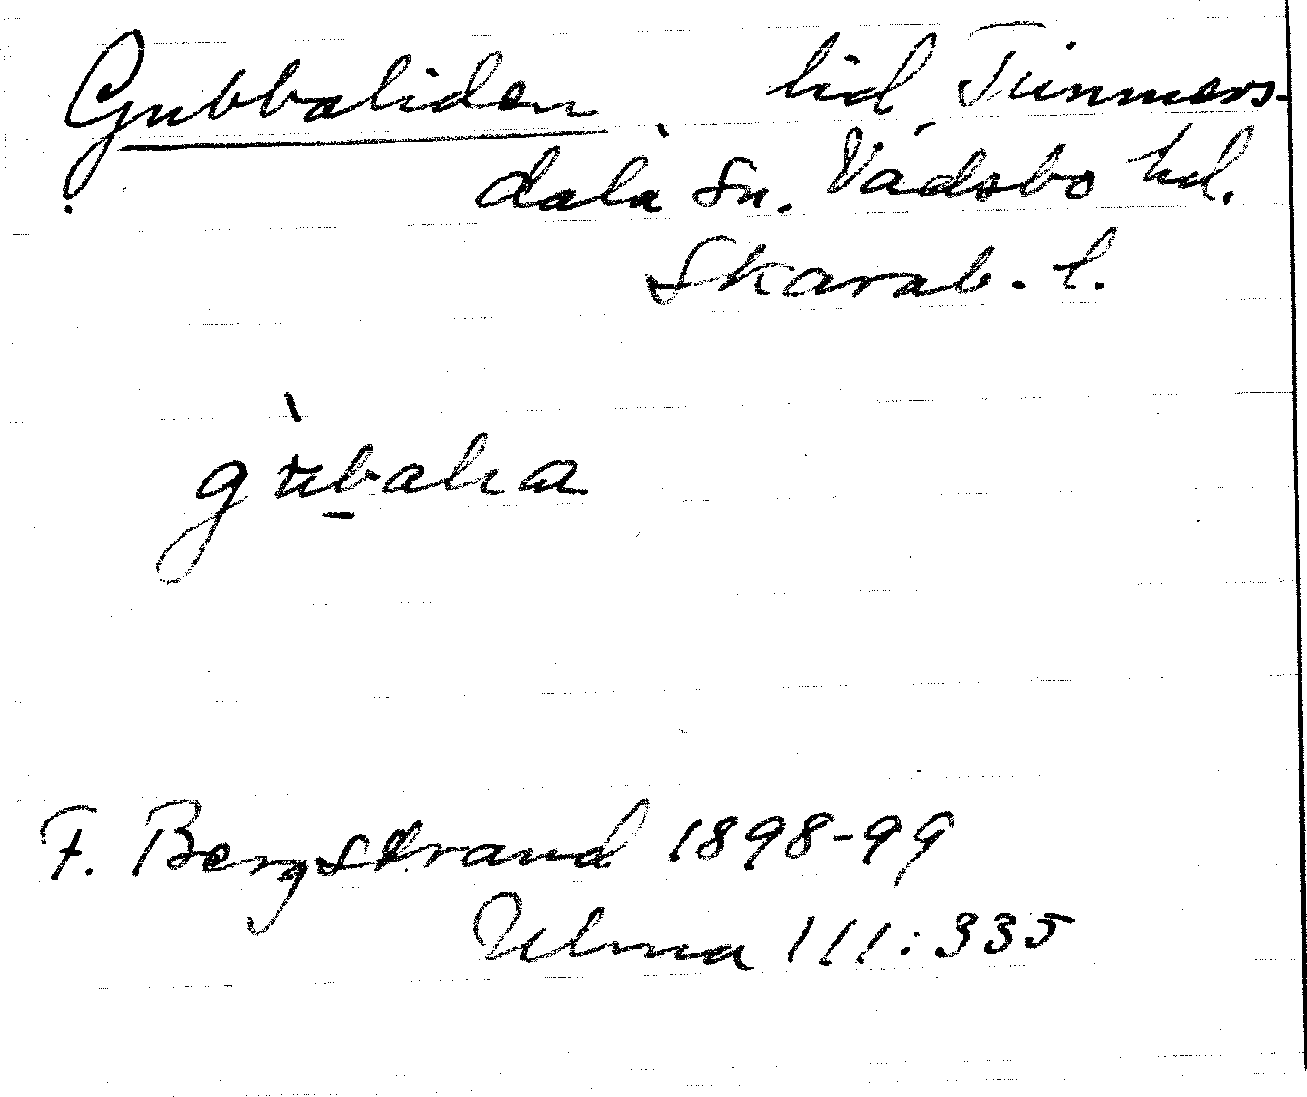 Gubbaliden lid Timmers-
dala sn. Vadsbo hd.
Skarab. l.
F. Bergstrand 1898-99
Ulma 111:335